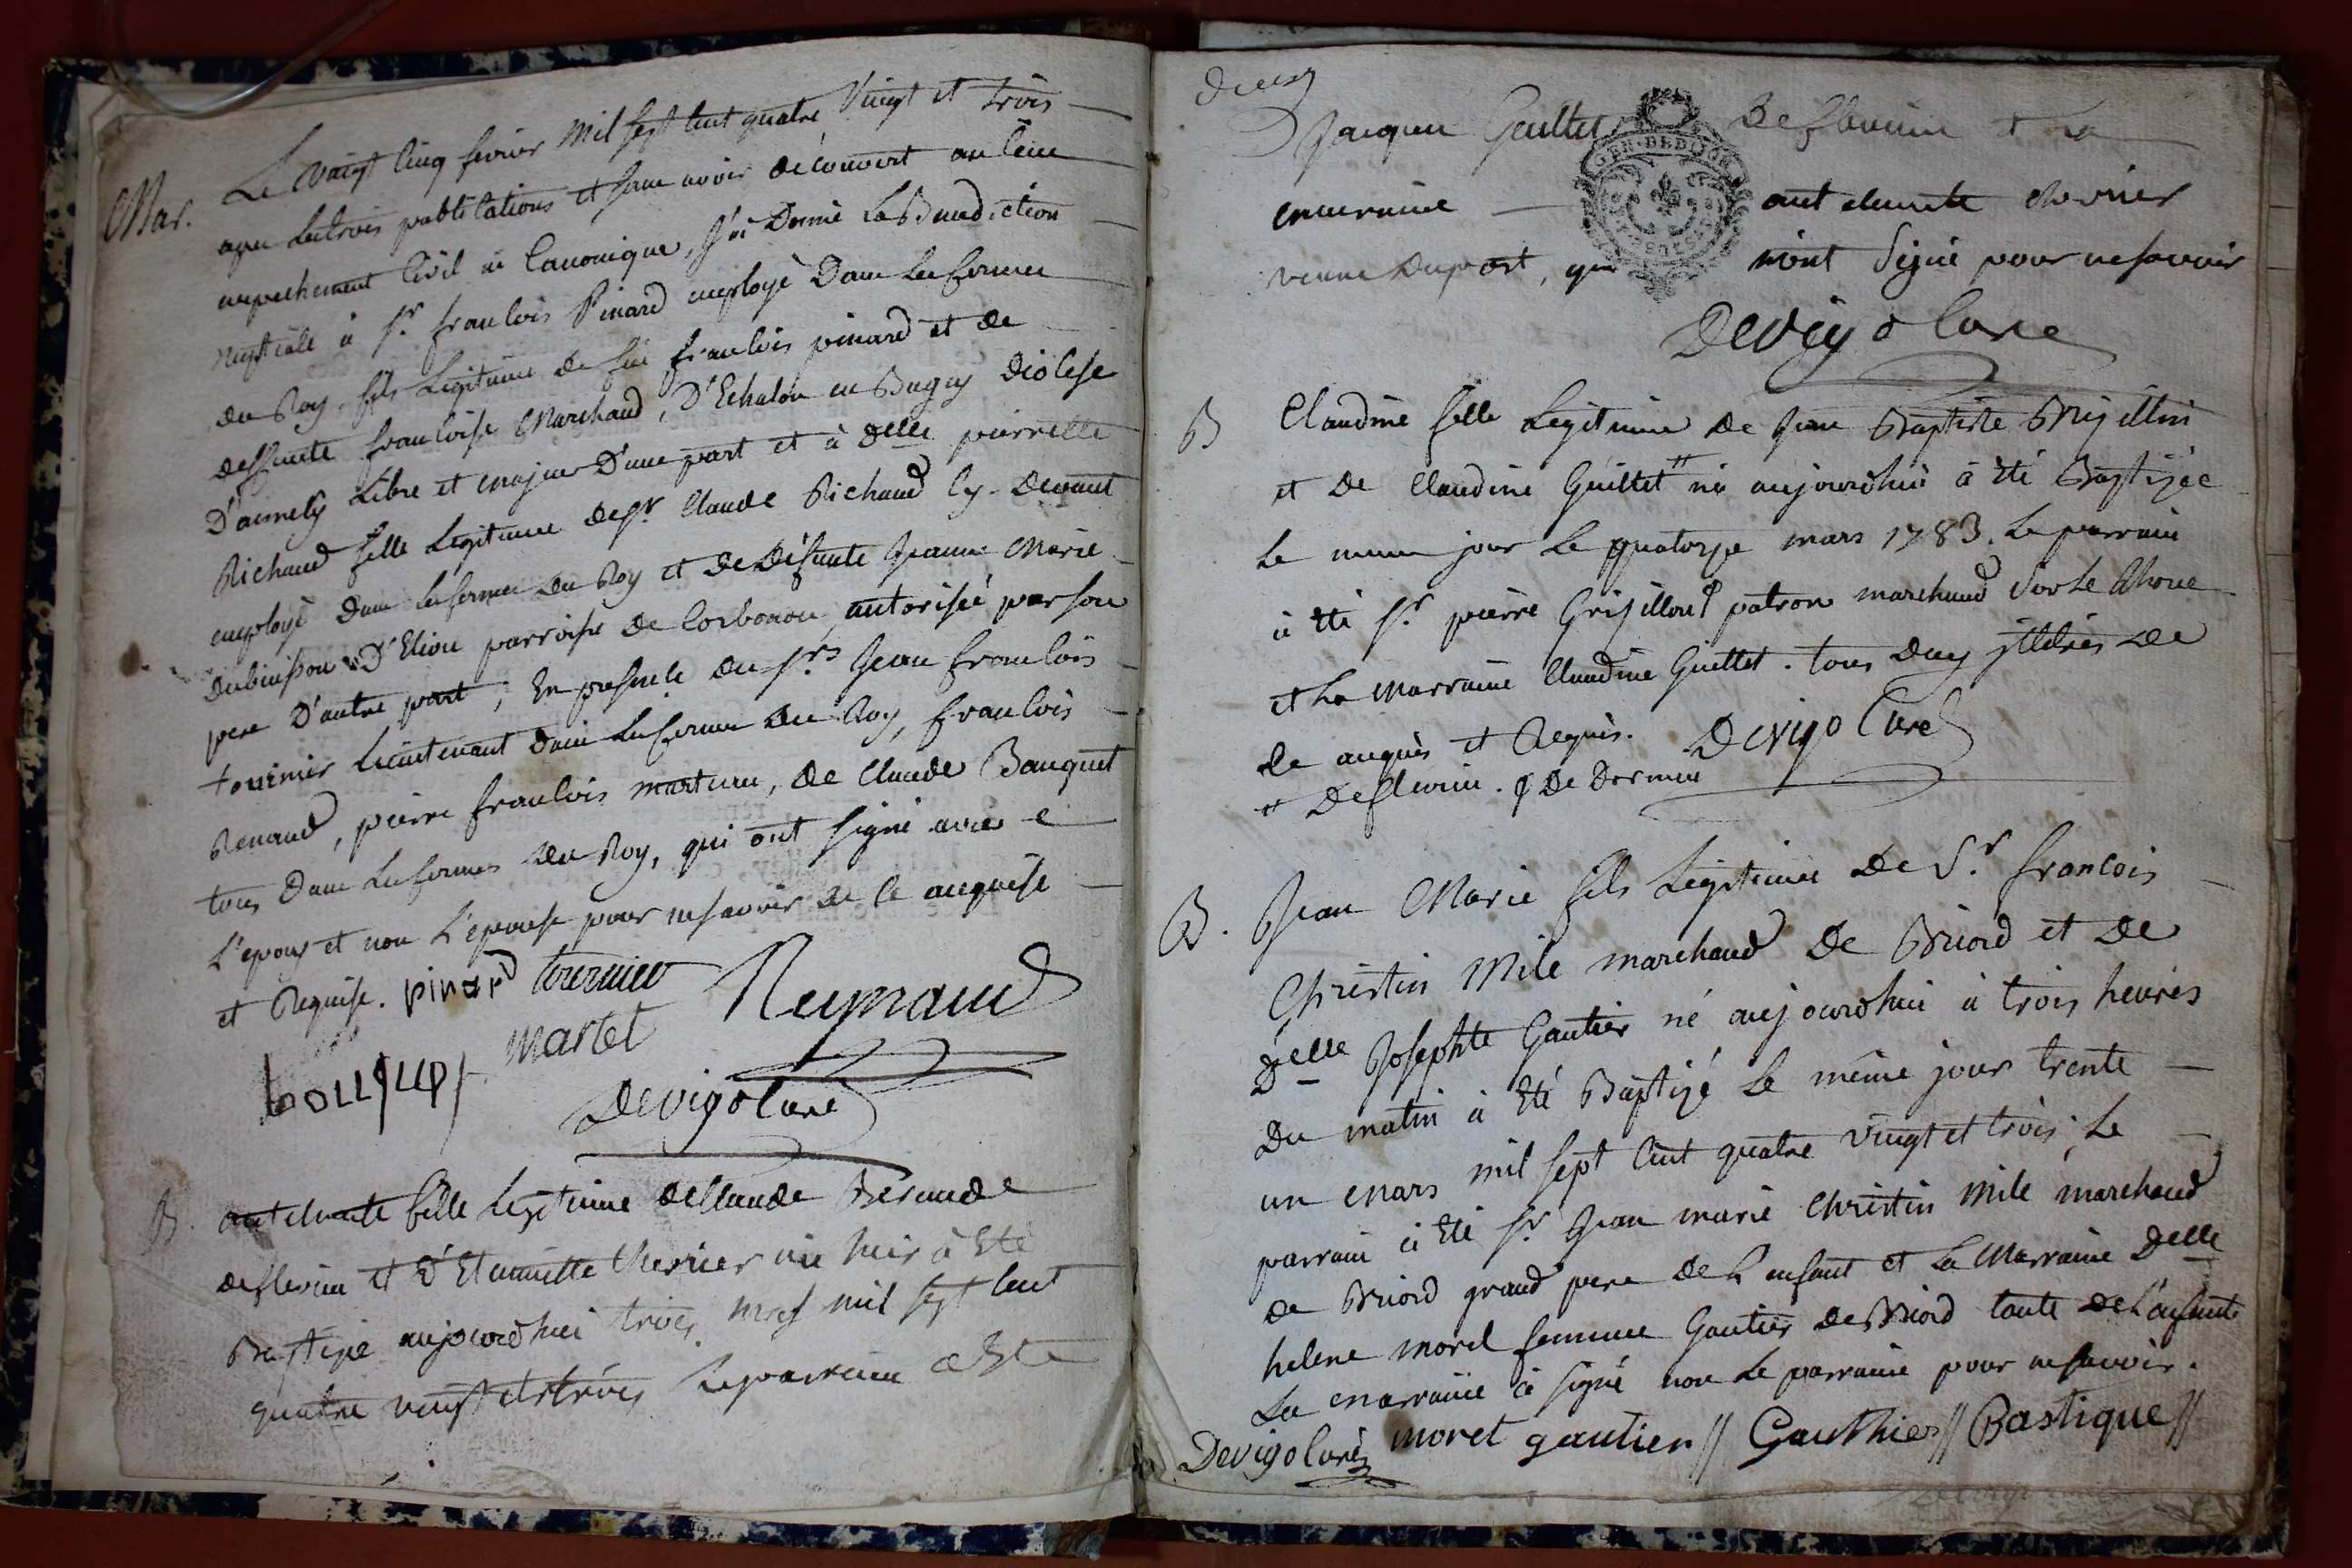 Mar. Le vingt cinq fevrier mil sept cent quatre vingt et trois
apres les trois publications et sans avoir découvert aucun
empechement Civil ni Canonique, J'ai Donné La Benediction
nuptiale à Sr. francois Pinard employé Dans les fermes
du Roy, fils Legitime de feu francois pinard et de
deffunte francoise Marchand, D'Echalon en Bugey Diocese
D'annecy Libre et majeur D'une part et à Delle pierrette
Richaud fille Legitime de Sr. Claude Richaud Cy-Devant
employé Dans les fermes du Roy et de Défunte Jeanne Marie
Dubuisson D'Eliou parroisse de Corbonou, autorisée par son
pere D'autre part, En presence des Srs. Jean francois
tournier Lieutenant Dans les fermes du Roy, francois
Renaud, pierre francois marteau, de Claude Bauquet
tous Dans les fermes du Roy, qui ont signé avec
L'epoux et non L'epouse pour ne savoir de ce enquise
et Requise. pinard tournier
martel Reynaud
Devigo Curé
B. antelmette fille Legitime de Claude
de flevieu et D'Etiennette Chevrier née hier à Eté
Baptisée aujourdhui trois mars mil sept cent
quatre vingt et trois Le parrain a Eté
Jacques Guillet De flevieu et La
marraine antelmette chevrier
veuve Dupont, qui n'ont Signé pour ne savoir
GEN. DE DIJON
Devigo Curé
B Claudine fille Legitime de Jean Baptiste
et de Claudine Guillet # née aujourdhui à Eté Baptisée
le meme jour Le quatorze mars 1783. Le parrain
à Eté Sr. pierre Grisillon patron marchand sur le Rhone
et La marraine Claudine Guillet. tous Deux illitérés de
ce enquis et Requis. Devigo Curé
# De flevieu.
B. Jean Marie fils Legitime de Sr. francois
Christin Mile marchand De Briord et de
Delle Josephte Gautier né aujourdhui à trois heures
Du matin à Eté Baptizé Le même jour trente
un mars mil sept cent quatre vingt et trois, Le
parrain à Eté Sr Jean marie Christin Mile marchand
de Briord grand pere de L'enfant et La Marraine Delle
helene morel femme Gautier de Briord tante de L'enfant
La marraine à signé non Le parrain pour ne savoir.
Devigo Curé moret gautier // Gauthier // Bastique //